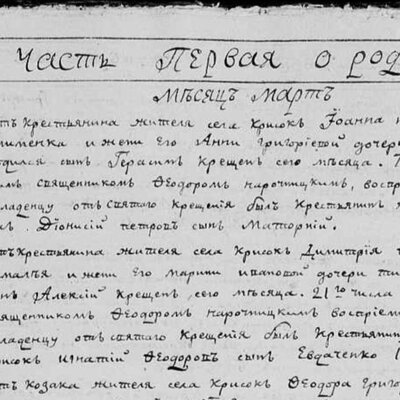 Часть Первая о род
Мѣсяцъ Мартъ
Крестьянина жителя села Крисокъ Іоанна
именка и жени его Анни Григоріевой дочери
одился сынъ Герасимъ Крещенъ сего мѣсяца.
священникомъ Феодоромъ нарочтицкимъ, воспр
младенцу отъ святаго Крещенія былъ Крестьянинъ
Діонисій Петровъ сынъ Маторній.
Крестьянина жителя села Крисокъ Димитрія
и жени его Марини ивановой дочери
Алексій Крещенъ сего мѣсяца. 21го числа
священникомъ Феодоромъ нарочтицкимъ воспріем
младенцу отъ святаго Крещенія былъ Крестьянин
рисокъ игнатій Феодоровъ сынъ Евдаченко
Козака жителя села Крисокъ Феодора Григо